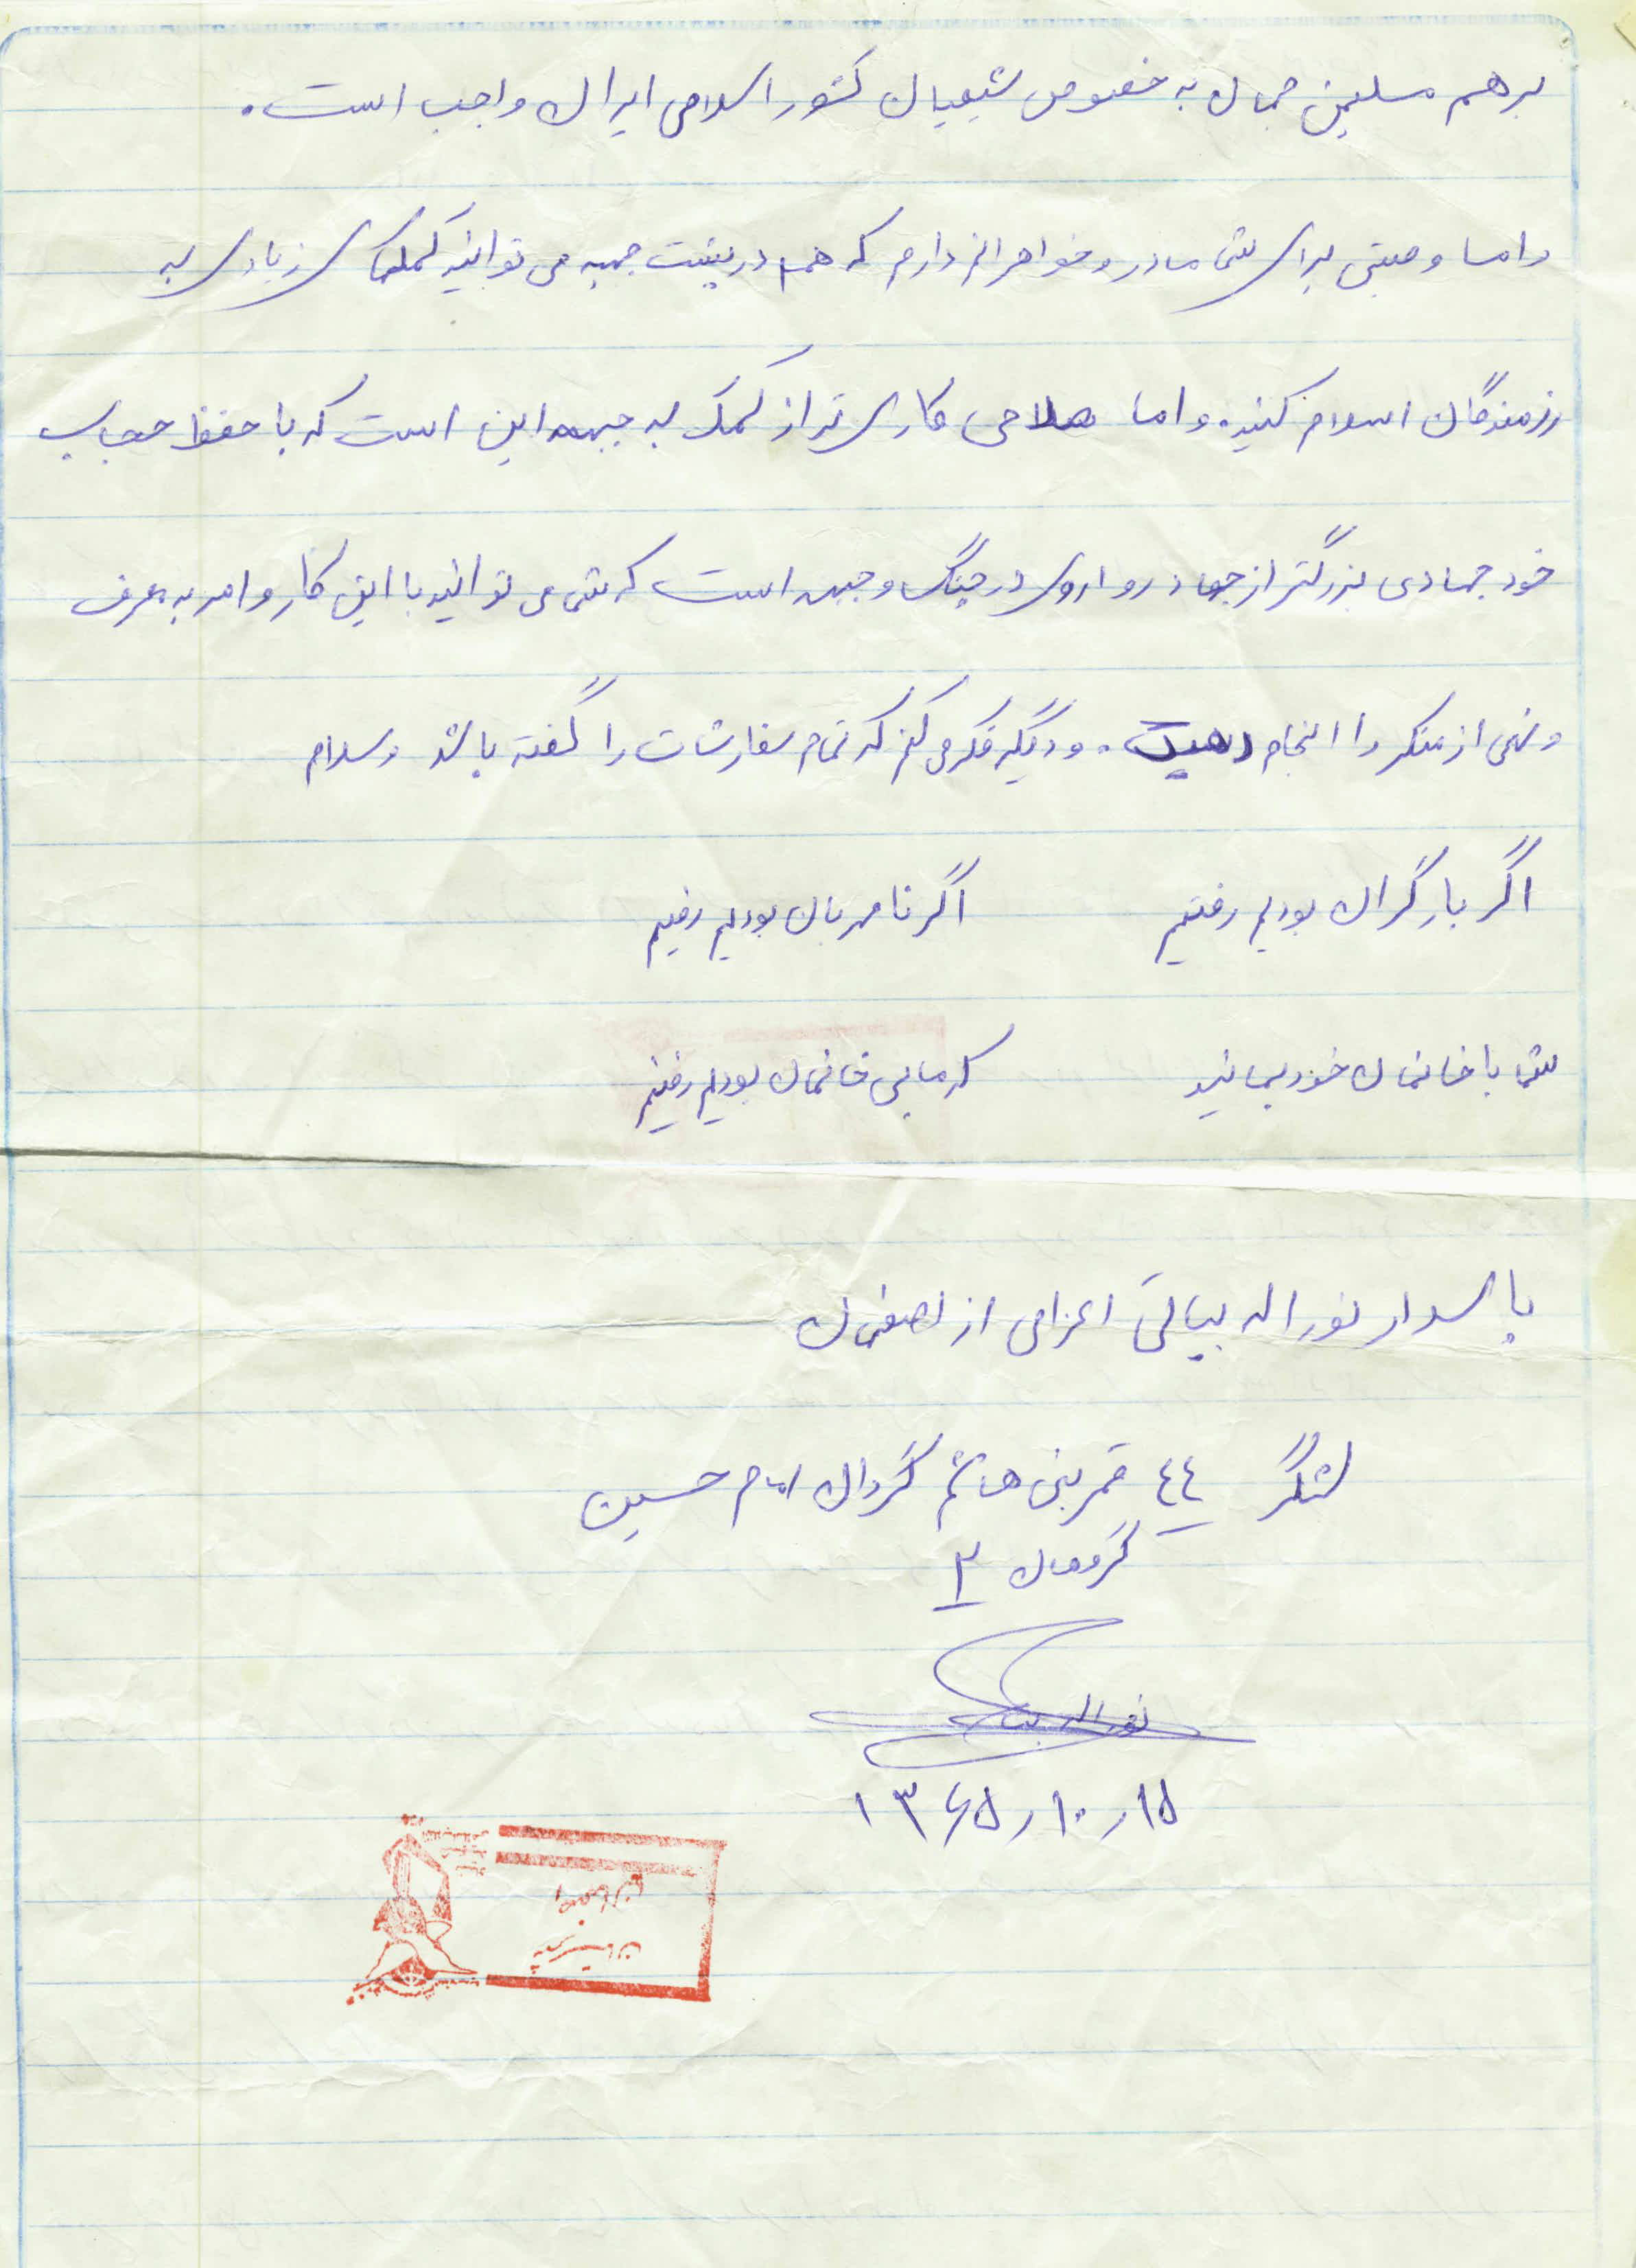 بر هم مسلمین جهان به خصوص شیعیان کشور اسلامی ایران واجب است.
و اما وصیتی برای شما مادر و خواهرانم دارم که هم در پشت جبهه می توانید کمکهای زیادی به
رزمندگان اسلام کنید. و اما صلاحی کاری تر از کمک به جبهه این است که با حفظ حجاب
خود جهادی بزرگتر از جهاد رو اروی در جنگ و جبهه است که شما می توانید با این کار و امر به معرف
و نهی از منکر را انجام دهید. و دیگه فکر می کنم که تمام سفارشات را گفته باشم وسلام
اگر بار گران بودیم رفتیم اگر نامهربان بودیم رفتیم
شما با خانمان خود بمانید که ما بی خانمان بودیم رفتیم
پاسدار نوراله بیاتی اعزامی از اصفهان
لشگر ٤٤ قمر بنی هاشم گردان امام حسین
گروهان ٣
نوراله
۱۵ر۱۰ر۱۳۶۵
اصفهان